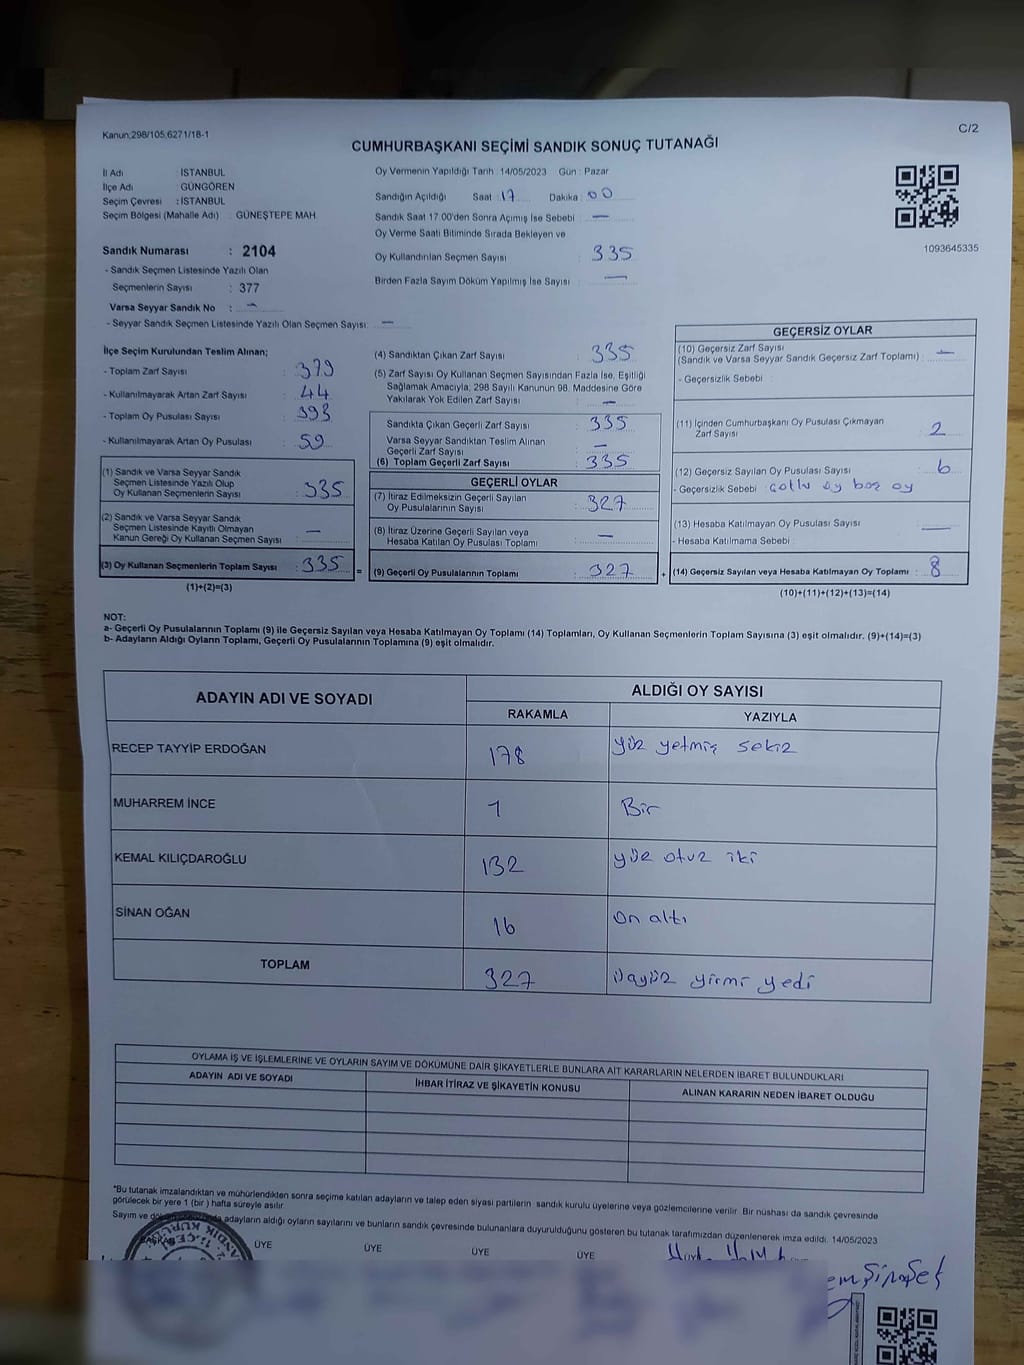 Kanun;298/105;6271/18-1
C/2
CUMHURBAŞKANI SEÇİMİ SANDIK SONUÇ TUTANAĞI
İl Adı : İSTANBUL
İlçe Adı : GÜNGÖREN
Seçim Çevresi : İSTANBUL
Seçim Bölgesi (Mahalle Adı) : GÜNEŞTEPE MAH.
Sandık Numarası : 2104
- Sandık Seçmen Listesinde Yazılı Olan
Seçmenlerin Sayısı : 377
Varsa Seyyar Sandık No : —
- Seyyar Sandık Seçmen Listesinde Yazılı Olan Seçmen Sayısı: —
Oy Vermenin Yapıldığı Tarih :14/05/2023 Gün : Pazar
Sandığın Açıldığı Saat : 17 Dakika : 00
Sandık Saat 17.00'den Sonra Açımış İse Sebebi : —
Oy Verme Saati Bitiminde Sırada Bekleyen ve
Oy Kullandırılan Seçmen Sayısı : 335
Birden Fazla Sayım Döküm Yapılmış İse Sayısı : —
1093645335
İlçe Seçim Kurulundan Teslim Alınan;
- Toplam Zarf Sayısı : 379
- Kullanılmayarak Artan Zarf Sayısı : 44
- Toplam Oy Pusulası Sayısı : 393
- Kullanılmayarak Artan Oy Pusulası : 59
(1) Sandık ve Varsa Seyyar Sandık
Seçmen Listesinde Yazılı Olup
Oy Kullanan Seçmenlerin Sayısı : 335
(2) Sandık ve Varsa Seyyar Sandık
Seçmen Listesinde Kayıtlı Olmayan
Kanun Gereği Oy Kullanan Seçmen Sayısı : —
(3) Oy Kullanan Seçmenlerin Toplam Sayısı : 335
(1)+(2)=(3)
(4) Sandıktan Çıkan Zarf Sayısı : 335
(5) Zarf Sayısı Oy Kullanan Seçmen Sayısından Fazla İse, Eşitliği
Sağlamak Amacıyla; 298 Sayılı Kanunun 98. Maddesine Göre
Yakılarak Yok Edilen Zarf Sayısı : —
Sandıkta Çıkan Geçerli Zarf Sayısı : 335
Varsa Seyyar Sandıktan Teslim Alınan
Geçerli Zarf Sayısı : —
(6) Toplam Geçerli Zarf Sayısı : 335
GEÇERLİ OYLAR
(7) İtiraz Edilmeksizin Geçerli Sayılan
Oy Pusulalarının Sayısı : 327
(8) İtiraz Üzerine Geçerli Sayılan veya
Hesaba Katılan Oy Pusulası Toplamı : —
= (9) Geçerli Oy Pusulalarının Toplamı : 327
GEÇERSİZ OYLAR
(10) Geçersiz Zarf Sayısı
(Sandık ve Varsa Seyyar Sandık Geçersiz Zarf Toplamı) : —
- Geçersizlik Sebebi :
(11) İçinden Cumhurbaşkanı Oy Pusulası Çıkmayan
Zarf Sayısı : 2
(12) Geçersiz Sayılan Oy Pusulası Sayısı : 6
- Geçersizlik Sebebi : çoklu oy boş oy
(13) Hesaba Katılmayan Oy Pusulası Sayısı : —
- Hesaba Katılmama Sebebi :
+ (14) Geçersiz Sayılan veya Hesaba Katılmayan Oy Toplamı : 8
(10)+(11)+(12)+(13)=(14)
NOT:
a- Geçerli Oy Pusulalarının Toplamı (9) ile Geçersiz Sayılan veya Hesaba Katılmayan Oy Toplamı (14) Toplamları, Oy Kullanan Seçmenlerin Toplam Sayısına (3) eşit olmalıdır. (9)+(14)=(3)
b- Adayların Aldığı Oyların Toplamı, Geçerli Oy Pusulalarının Toplamına (9) eşit olmalıdır.
ADAYIN ADI VE SOYADI
ALDIĞI OY SAYISI
RAKAMLA YAZIYLA
RECEP TAYYİP ERDOĞAN 178 yüz yetmiş sekiz
MUHARREM İNCE 1 Bir
KEMAL KILIÇDAROĞLU 132 yüz otuz iki
SİNAN OĞAN 16 on altı
TOPLAM 327 üçyüz yirmi yedi
OYLAMA İŞ VE İŞLEMLERİNE VE OYLARIN SAYIM VE DÖKÜMÜNE DAİR ŞİKAYETLERLE BUNLARA AİT KARARLARIN NELERDEN İBARET BULUNDUKLARI
ADAYIN ADI VE SOYADI İHBAR İTİRAZ VE ŞİKAYETİN KONUSU ALINAN KARARIN NEDEN İBARET OLDUĞU
*Bu tutanak imzalandıktan ve mühürlendikten sonra seçime katılan adayların ve talep eden siyasi partilerin sandık kurulu üyelerine veya gözlemcilerine verilir. Bir nüshası da sandık çevresinde
görülecek bir yere 1 (bir) hafta süreyle asılır.
Sayım ve adayların aldığı oyların sayılarını ve bunların sandık çevresinde bulunanlara duyurulduğunu gösteren bu tutanak tarafımızdan düzenlenerek imza edildi. 14/05/2023
BAŞKAN ÜYE ÜYE ÜYE ÜYE